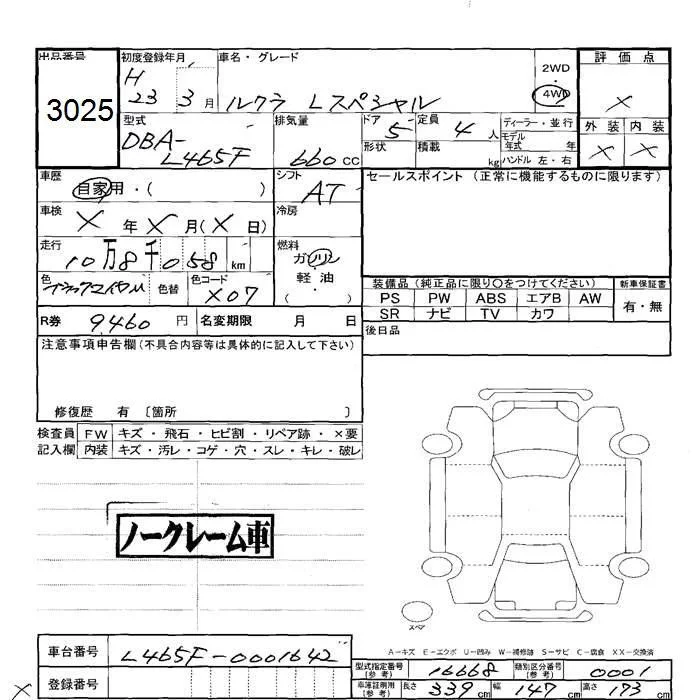 出品番号
3025
初度登録年月
H
23 3月
車名・グレード
ルクラ Lスペシャル
2WD
・
4WD
評価点
×
外装 内装
× ×
型式
DBA-
L465F
排気量
660cc
ドア
5
形状
定員
4人
積載 kg
ディーラー・並行
モデル
年式 年
ハンドル 左・右
車歴
自家用・( )
シフト
AT
セールスポイント (正常に機能するものに限ります)
車検
×年×月(×日)
冷房
走行
10万8千058km
燃料
ガソリン
軽油
( ・ )
色
色替
色コード
X07
装備品(純正品に限り○をつけてください)
PS PW ABS エアB AW
SR ナビ TV カワ
新車保証書
有・無
R券 9,460円
名変期限 月 日
後日品
注意事項申告欄(不具合内容等は具体的に記入して下さい)
修復歴 有 〔箇所 〕
検査員 FW キズ・飛石・ヒビ割・リペア跡・×要
記入欄 内装 キズ・汚レ・コゲ・穴・スレ・キレ・破レ
ノークレーム車
スペア
A-キズ E-エクボ U-凹み W-補修跡 S-サビ C-腐食 XX-交換済
車台番号 L465F-0001642
登録番号
型式指定番号(参考) 16668
類別区分番号(参考) 0001
車庫証明用(参考) 長さ 339cm 幅 147cm 高さ 173cm
×